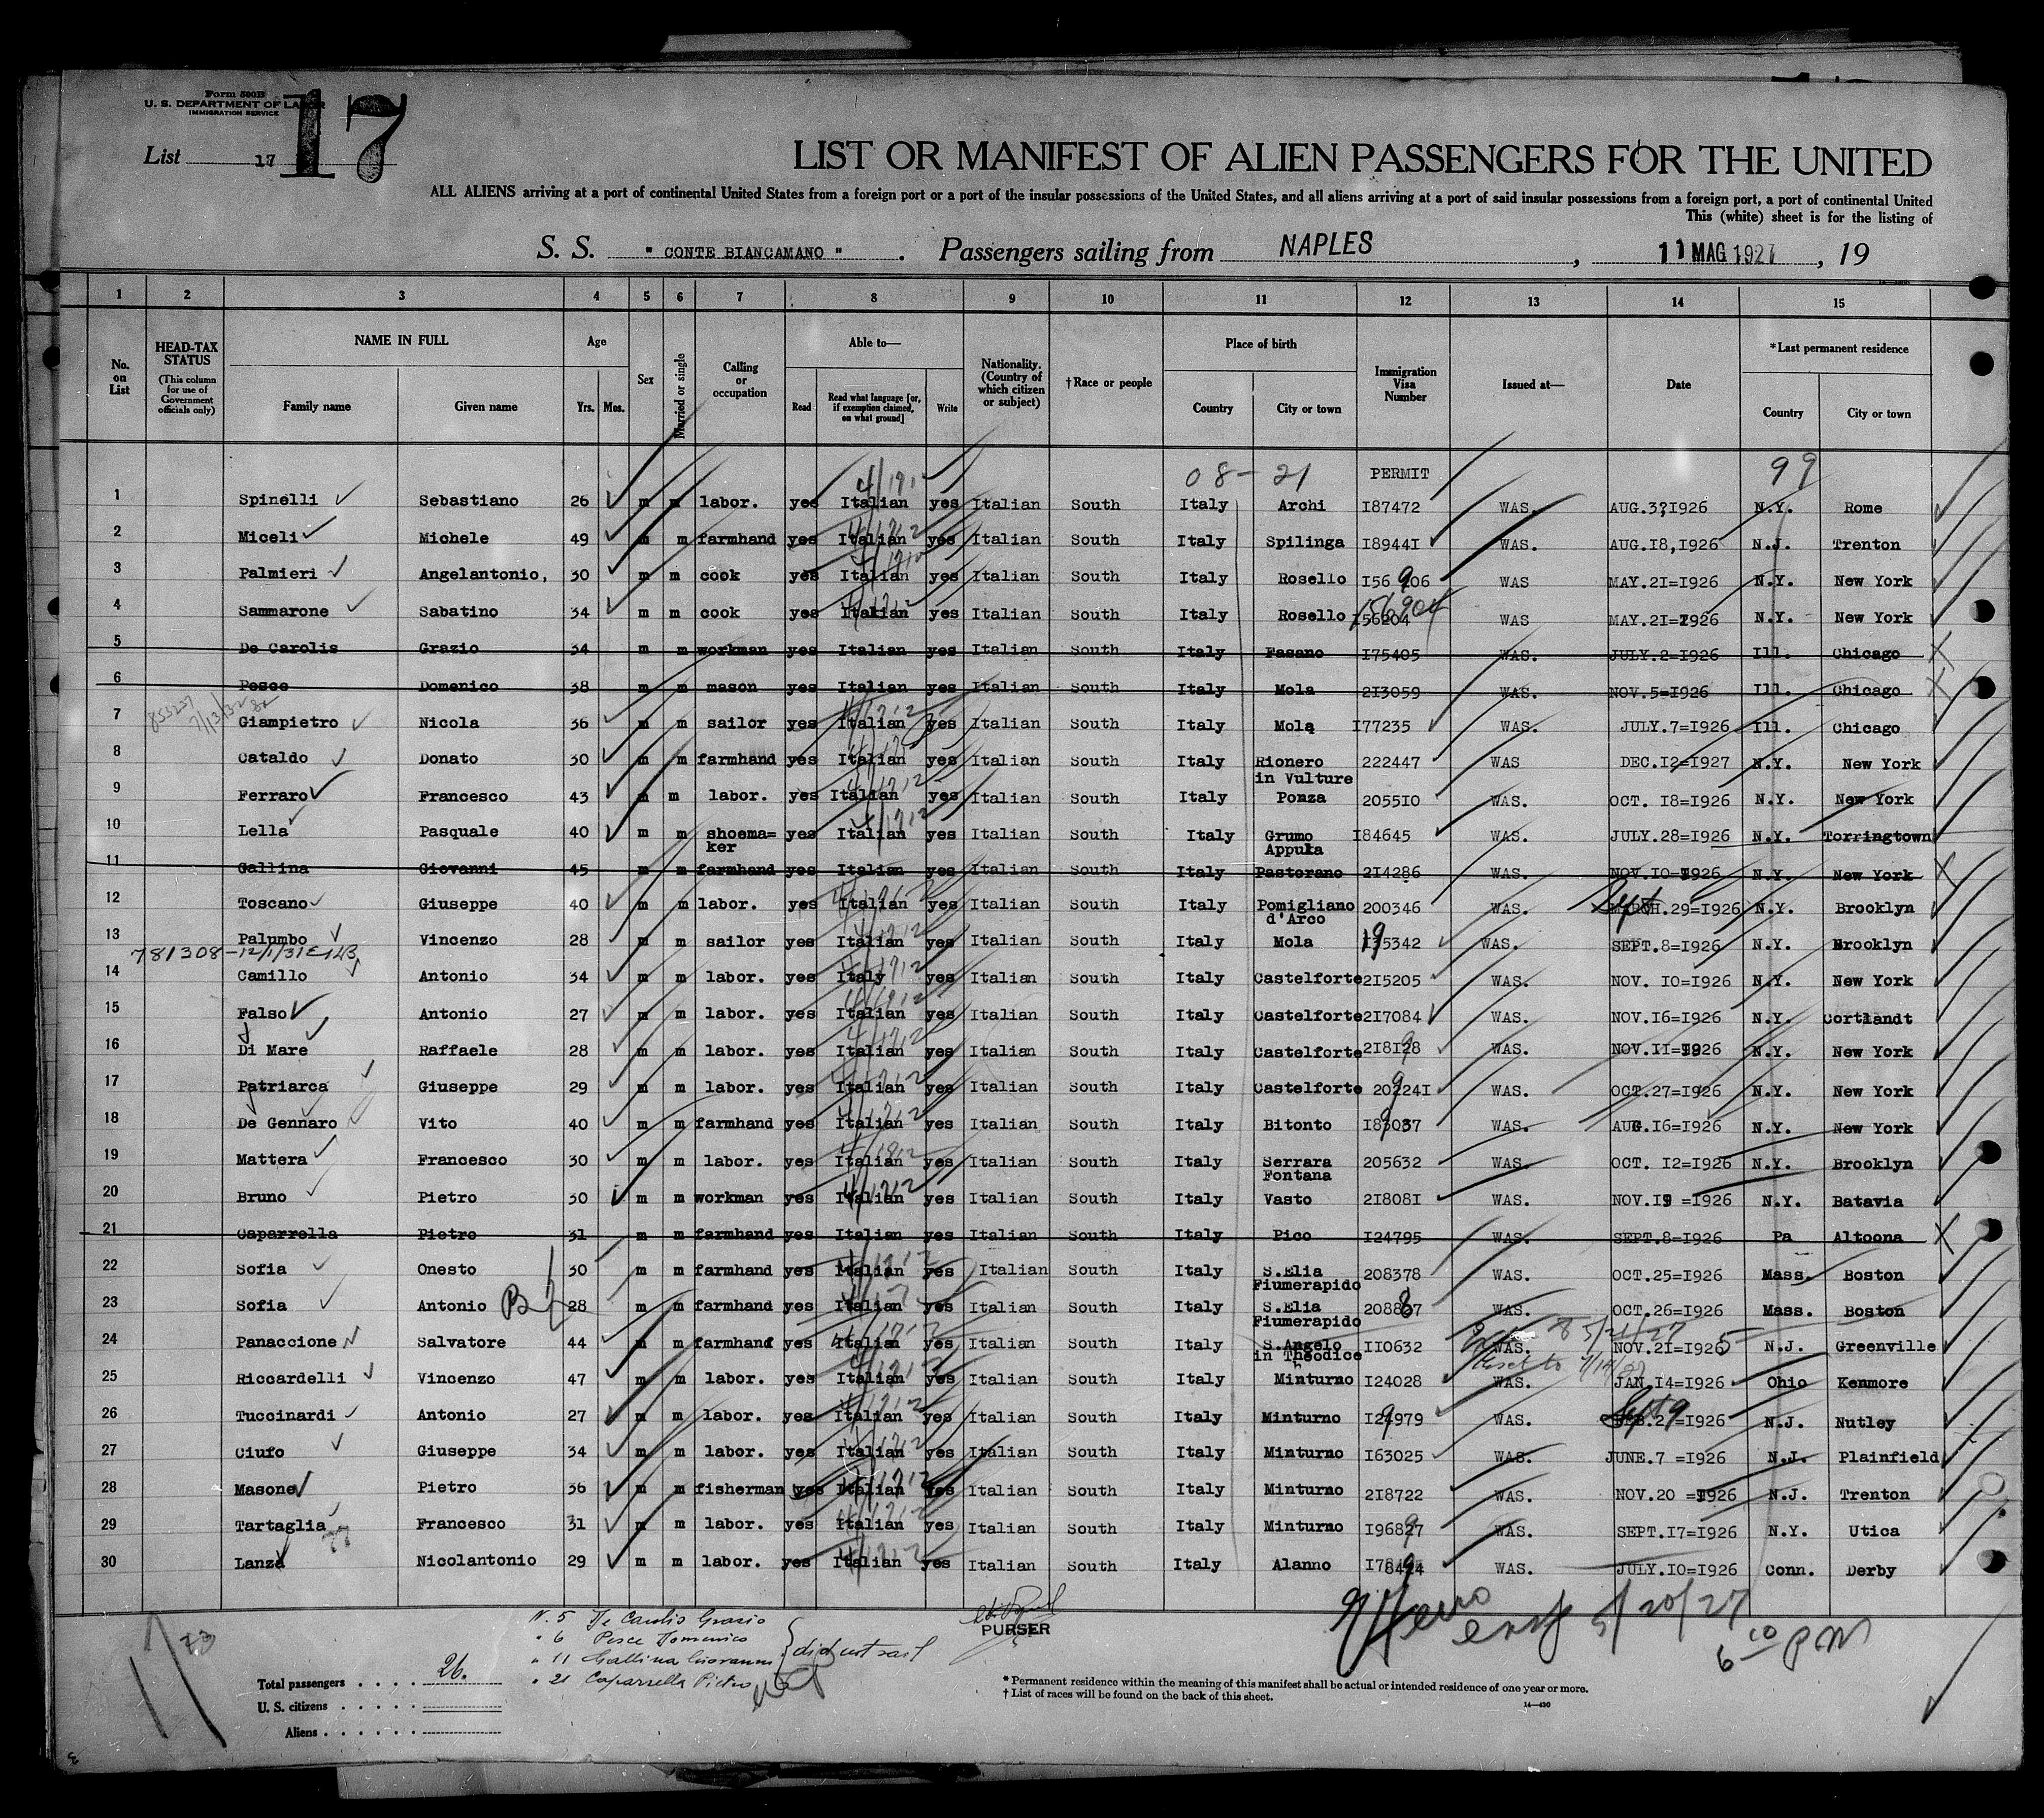 Form 500B
U. S. DEPARTMENT OF LABOR
IMMIGRATION SERVICE
List 17
17
LIST OR MANIFEST OF ALIEN PASSENGERS FOR THE UNITED
ALL ALIENS arriving at a port of continental United States from a foreign port or a port of the insular possessions of the United States, and all aliens arriving at a port of said insular possessions from a foreign port, a port of continental United
This (white) sheet is for the listing of
S. S. " CONTE BIANCAMANO " . Passengers sailing from NAPLES , 11 MAG 1927 , 19
1 2 3 4 5 6 7 8 9 10 11 12 13 14 15
No. on List
HEAD-TAX STATUS (This column for use of Government officials only)
NAME IN FULL
Family name Given name
Age
Yrs. Mos.
Sex
Married or single
Calling or occupation
Able to—
Read Read what language [or, if exemption claimed, on what ground] Write
Nationality. (Country of which citizen or subject)
†Race or people
Place of birth
Country City or town
Immigration Visa Number
Issued at—
Date
*Last permanent residence
Country City or town
08-21 PERMIT 99
1 Spinelli Sebastiano 26 m m labor. yes Italian yes Italian South Italy Archi I87472 WAS. AUG.3,I926 N.Y. Rome
2 Miceli Michele 49 m m farmhand yes Italian yes Italian South Italy Spilinga I8944I WAS. AUG.I8,I926 N.J. Trenton
3 Palmieri Angelantonio, 30 m m cook yes Italian yes Italian South Italy Rosello I56906 WAS MAY.2I=I926 N.Y. New York
4 Sammarone Sabatino 34 m m cook yes Italian yes Italian South Italy Rosello I56204 156904 WAS MAY.2I=I926 N.Y. New York
5 De Carolis Grazio 34 m m workman yes Italian yes Italian South Italy Fasano I75405 WAS. JULY.2=I926 Ill. Chicago
6 Pesce Domenico 38 m m mason yes Italian yes Italian South Italy Mola 2I3059 WAS. NOV.5=I926 Ill. Chicago
7 Giampietro Nicola 36 m m sailor yes Italian yes Italian South Italy Mola I77235 WAS. JULY.7=I926 Ill. Chicago
8 Cataldo Donato 30 m m farmhand yes Italian yes Italian South Italy Rionero in Vulture 222447 WAS DEC.I2=I927 N.Y. New York
9 Ferraro Francesco 43 m m labor. yes Italian yes Italian South Italy Ponza 2055I0 WAS. OCT. I8=I926 N.Y. New York
10 Lella Pasquale 40 m m shoema=ker yes Italian yes Italian South Italy Grumo Appula I84645 WAS. JULY.28=I926 N.Y. Torringtown
11 Gallina Giovanni 45 m m farmhand yes Italian yes Italian South Italy Pastorano 2I4286 WAS. NOV.I0=I926 N.Y. New York
12 Toscano Giuseppe 40 m m labor. yes Italian yes Italian South Italy Pomigliano d'Arco 200346 WAS. Sept .29=I926 N.Y. Brooklyn
13 Palumbo Vincenzo 28 m m sailor yes Italian yes Italian South Italy Mola 195342 WAS. SEPT.8=I926 N.Y. Brooklyn
781308-12/1/31
14 Camillo Antonio 34 m m labor. yes Italy yes Italian South Italy Castelforte 2I5205 WAS. NOV. I0=I926 N.Y. New York
15 Falso Antonio 27 m m labor. yes Italian yes Italian South Italy Castelforte 2I7084 WAS. NOV.I6=I926 N.Y. Cortlandt
16 Di Mare Raffaele 28 m m labor. yes Italian yes Italian South Italy Castelforte 2I8I28 WAS. NOV.II=I926 N.Y. New York
17 Patriarca Giuseppe 29 m m labor. yes Italian yes Italian South Italy Castelforte 20224I WAS. OCT.27=I926 N.Y. New York
18 De Gennaro Vito 40 m m farmhand yes Italian yes Italian South Italy Bitonto I89037 WAS. AUG.I6=I926 N.Y. New York
19 Mattera Francesco 30 m m labor. yes Italian yes Italian South Italy Serrara Fontana 205632 WAS. OCT. I2=I926 N.Y. Brooklyn
20 Bruno Pietro 30 m m workman yes Italian yes Italian South Italy Vasto 2I808I WAS. NOV.I9 =I926 N.Y. Batavia
21 Caparrella Pietro 31 m m farmhand yes Italian yes Italian South Italy Pico I24795 WAS. SEPT.8=I926 Pa Altoona
22 Sofia Onesto 30 m m farmhand yes Italian yes Italian South Italy S.Elia Fiumerapido 208378 WAS. OCT.25=I926 Mass. Boston
23 Sofia Antonio 28 m m farmhand yes Italian yes Italian South Italy S.Elia Fiumerapido 208887 WAS. OCT.26=I926 Mass. Boston
24 Panaccione Salvatore 44 m m farmhand yes Italian yes Italian South Italy S.Angelo in Theodice II0632 WAS. NOV.2I=I925 N.J. Greenville
25 Riccardelli Vincenzo 47 m m labor. yes Italian yes Italian South Italy Minturno I24028 WAS. JAN.I4=I926 Ohio Kenmore
26 Tuccinardi Antonio 27 m m labor. yes Italian yes Italian South Italy Minturno I29979 WAS. =I926 N.J. Nutley
27 Ciufo Giuseppe 34 m m labor. yes Italian yes Italian South Italy Minturno I63025 WAS. JUNE.7 =I926 N.J. Plainfield
28 Masone Pietro 36 m m fisherman yes Italian yes Italian South Italy Minturno 2I8722 WAS. NOV.20 =I926 N.J. Trenton
29 Tartaglia Francesco 31 m m labor. yes Italian yes Italian South Italy Minturno I96827 WAS. SEPT.I7=I926 N.Y. Utica
30 Lanza Nicolantonio 29 m m labor. yes Italian yes Italian South Italy Alanno I78494 WAS. JULY.I0=I926 Conn. Derby
N. 5 De Carolis Grazio
" 6 Pesce Domenico
" 11 Gallina Giovanni
" 21 Caparrella Pietro
did not sail
PURSER
5/20/27
6 10 PM
Total passengers . . . . 26.
U. S. citizens . . . . .
Aliens . . . . . .
* Permanent residence within the meaning of this manifest shall be actual or intended residence of one year or more.
† List of races will be found on the back of this sheet.
14—430